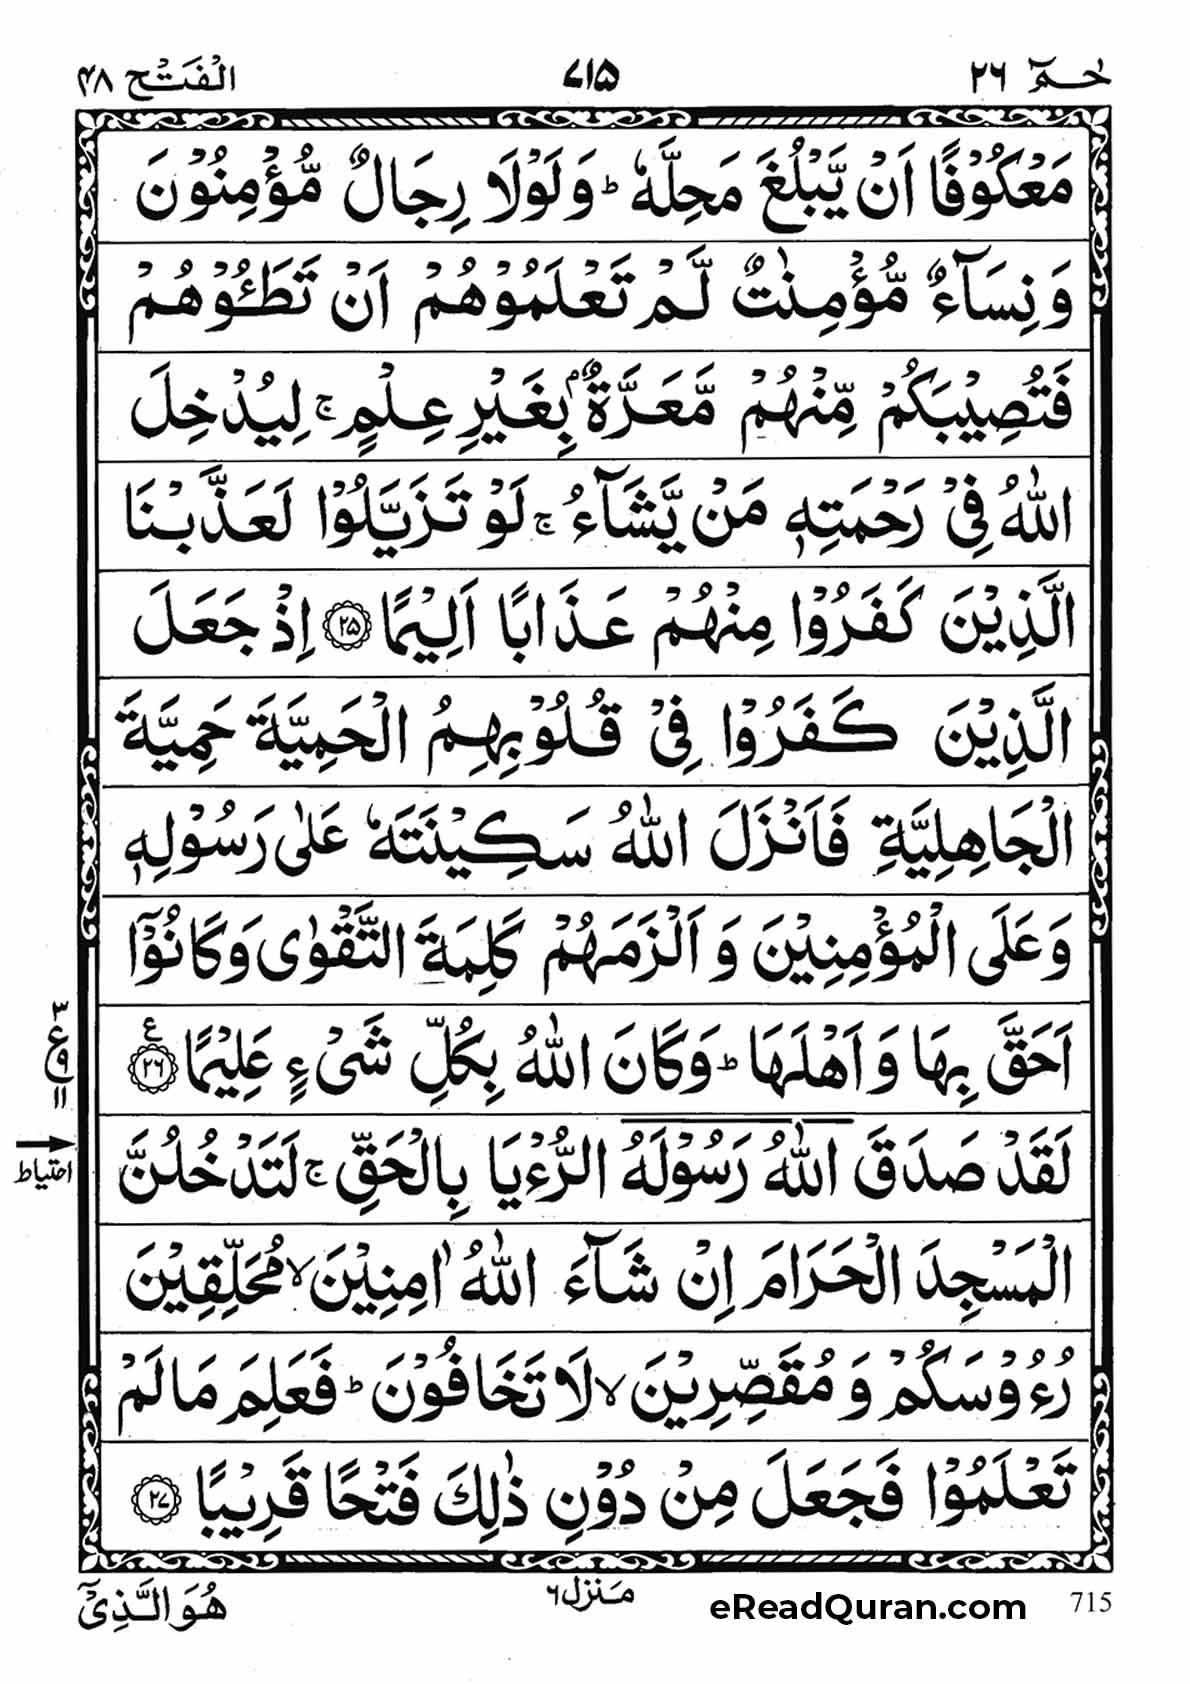 حٰمٓ ٢٦
٧١۵
الْفَتْح ۴٨
مَعْكُوْفًا اَنْ يَّبْلُغَ مَحِلَّهٗ ؕ وَلَوْلَا رِجَالٌ مُّؤْمِنُوْنَ
وَنِسَآءٌ مُّؤْمِنٰتٌ لَّمْ تَعْلَمُوْهُمْ اَنْ تَطَـُٔوْهُمْ
فَتُصِيْبَكُمْ مِّنْهُمْ مَّعَرَّةٌۢ بِغَيْرِ عِلْمٍ ۚ لِيُدْخِلَ
اللّٰهُ فِيْ رَحْمَتِهٖ مَنْ يَّشَآءُ ۚ لَوْ تَزَيَّلُوْا لَعَذَّبْنَا
الَّذِيْنَ كَفَرُوْا مِنْهُمْ عَذَابًا اَلِيْمًا ﴿٢۵﴾ اِذْ جَعَلَ
الَّذِيْنَ كَفَرُوْا فِيْ قُلُوْبِهِمُ الْحَمِيَّةَ حَمِيَّةَ
الْجَاهِلِيَّةِ فَاَنْزَلَ اللّٰهُ سَكِيْنَتَهٗ عَلٰى رَسُوْلِهٖ
وَعَلَى الْمُؤْمِنِيْنَ وَاَلْزَمَهُمْ كَلِمَةَ التَّقْوٰى وَكَانُوْٓا
اَحَقَّ بِهَا وَاَهْلَهَا ؕ وَكَانَ اللّٰهُ بِكُلِّ شَيْءٍ عَلِيْمًا ﴿٢٦﴾ ع
٣ ع ٩ ١١
لَقَدْ صَدَقَ اللّٰهُ رَسُوْلَهُ الرُّءْيَا بِالْحَقِّ ۚ لَتَدْخُلُنَّ
احتیاط
الْمَسْجِدَ الْحَرَامَ اِنْ شَآءَ اللّٰهُ اٰمِنِيْنَ ۙ مُحَلِّقِيْنَ
رُءُوْسَكُمْ وَمُقَصِّرِيْنَ ۙ لَا تَخَافُوْنَ ؕ فَعَلِمَ مَا لَمْ
تَعْلَمُوْا فَجَعَلَ مِنْ دُوْنِ ذٰلِكَ فَتْحًا قَرِيْبًا ﴿٢٧﴾
715
eReadQuran.com
مَنْزِل ٦
هُوَ الَّذِيْٓ